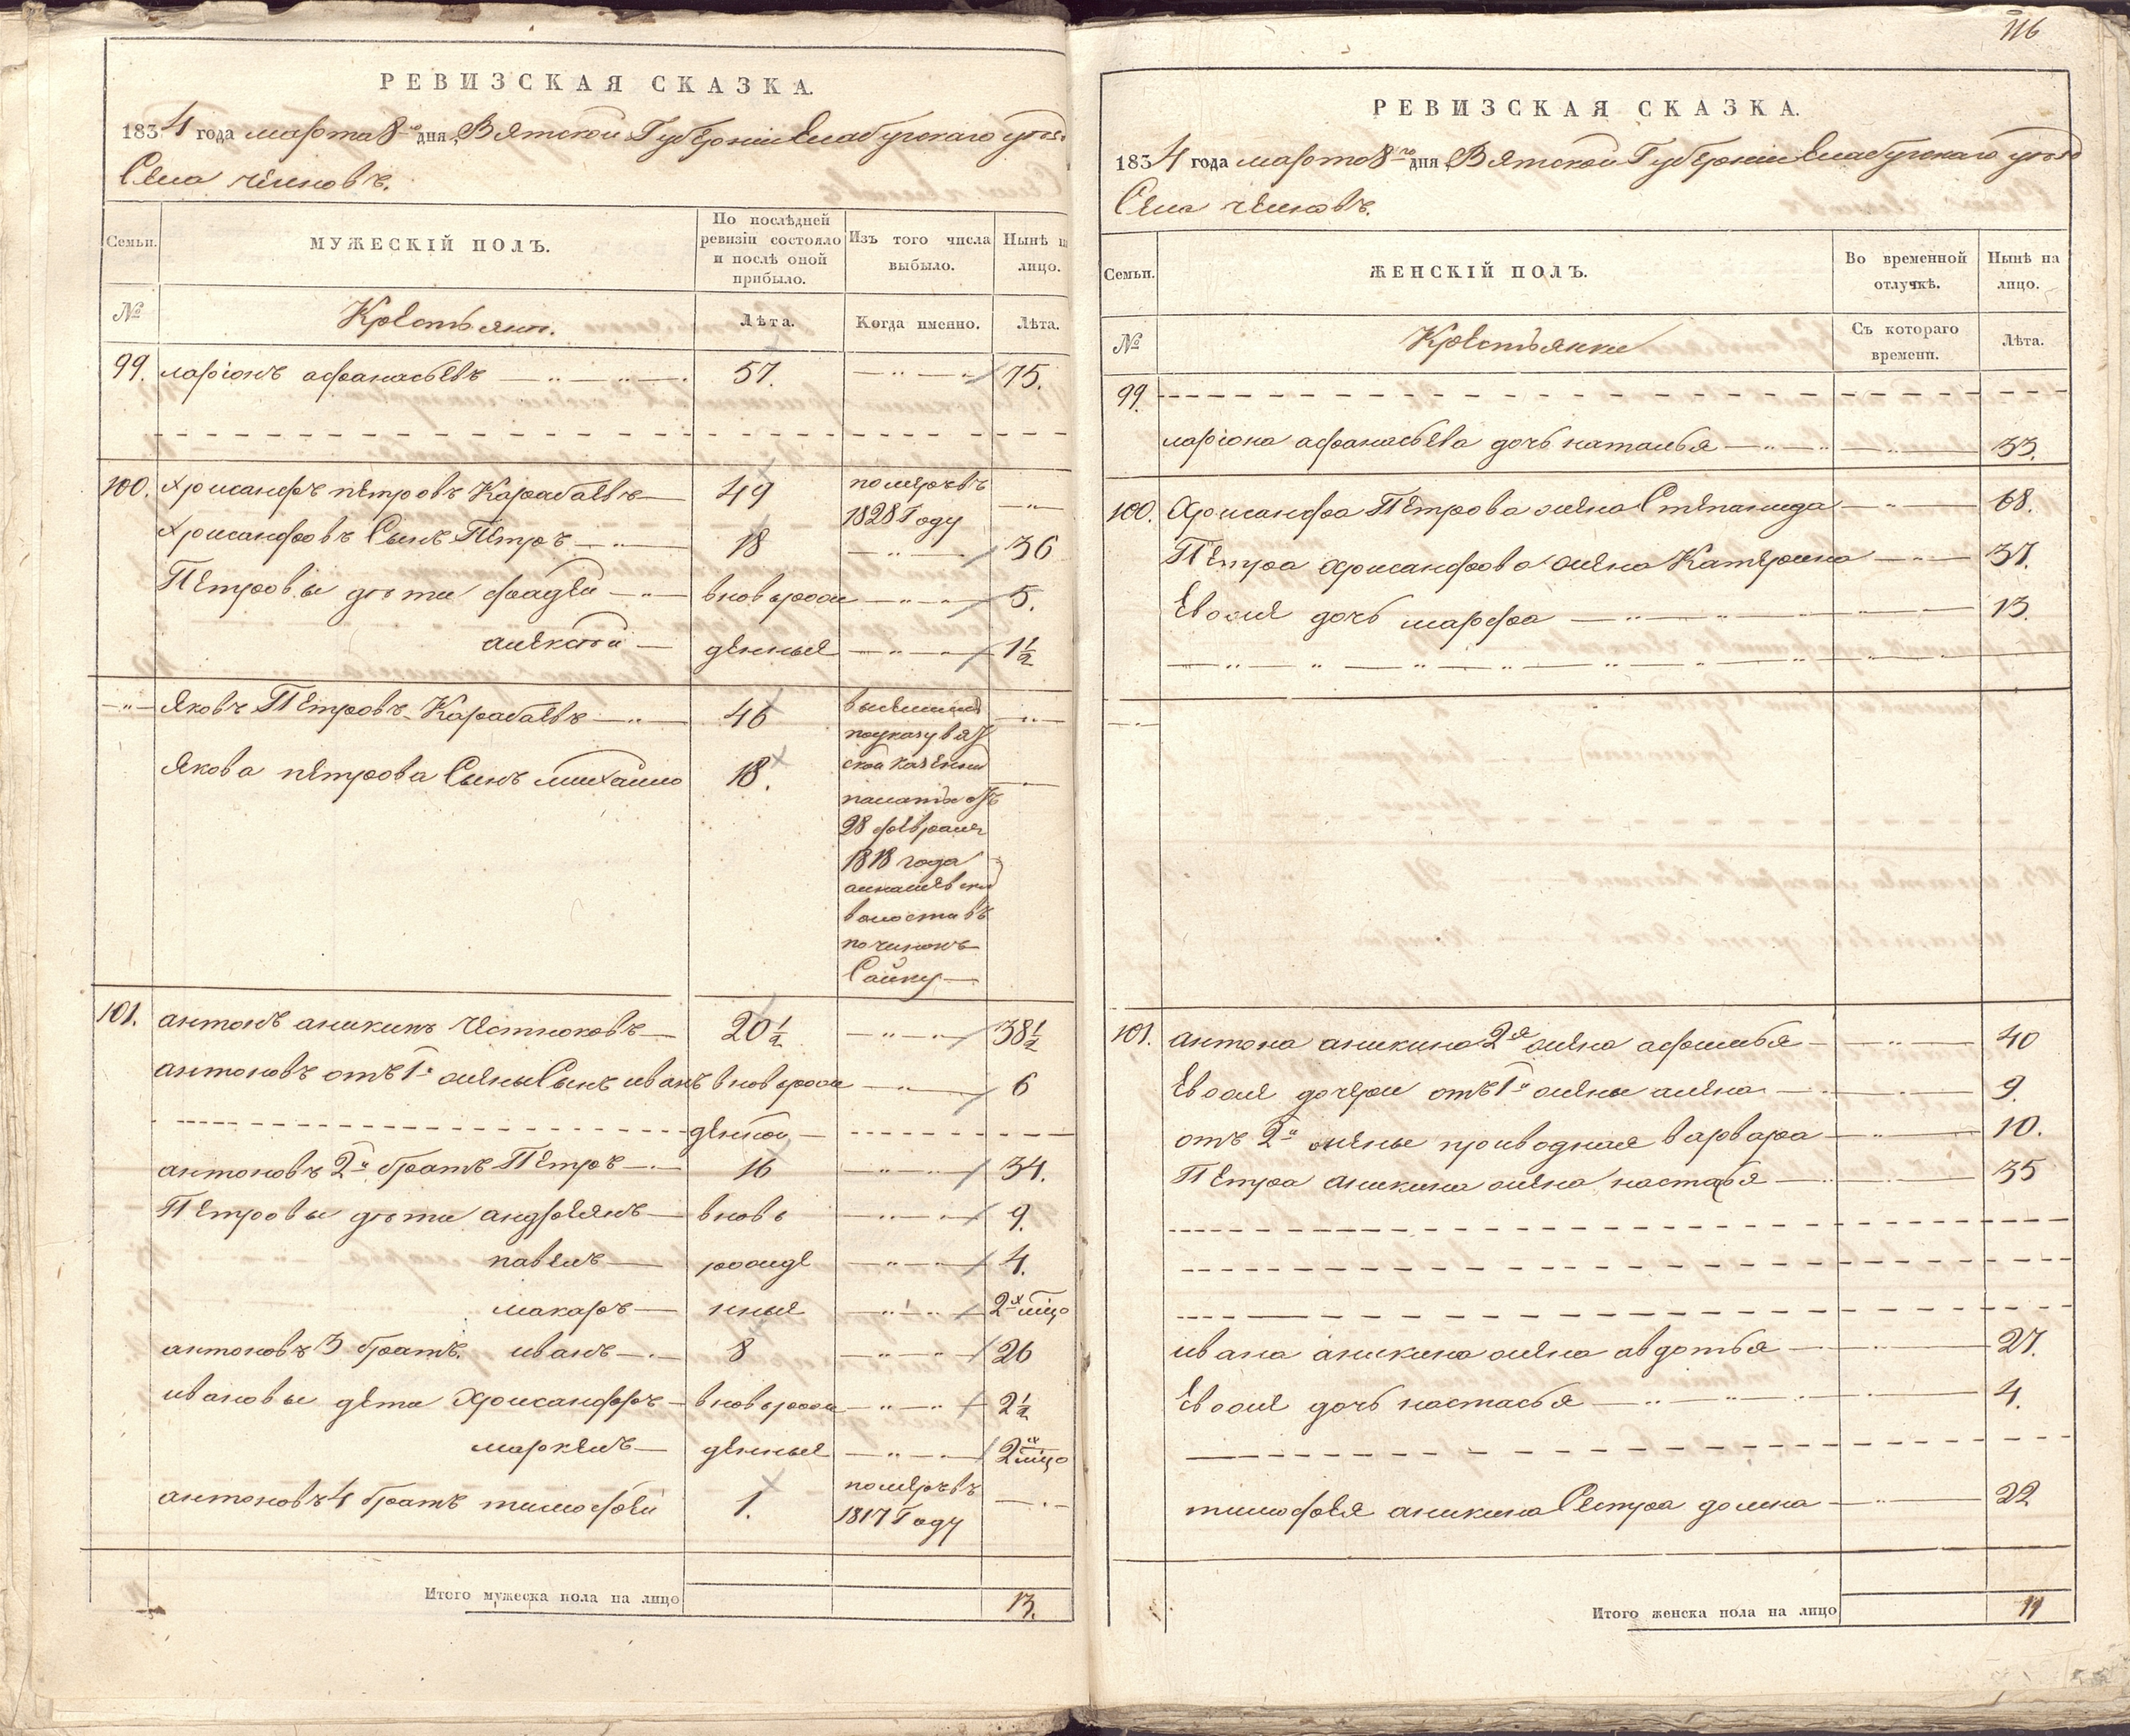 РЕВИЗСКАЯ СКАЗКА.
1834 года марта 8го дня, Вятской Губернии Елабугскаго уезда
Села челновъ.
Семьи. МУЖЕСКІЙ ПОЛЪ. По послѣдней ревизіи состояло и послѣ оной прибыло. Изъ того числа выбыло. Нынѣ на лицо.
№ Крестьяне. Лѣта. Когда именно. Лѣта.
99. ларіонъ афанасьевъ 57. 75.
100. Хрисанфъ петровъ Карабаевъ 49 померъ въ 1828 Году
Хрисанфовъ Сынъ Петръ 18 36
Петровы дѣти фадей вновь рож 5.
алексѣй денные 1 1/2
Яковъ Петровъ Карабаевъ 46 выселились
по указу вят
Якова петрова Сынъ михайло 18. ской казенной
палаты отъ
28 февраля
1818 года
волости въ
починокъ
Сайку
101. антонъ аникинъ Честноковъ 20 1/2 38 1/2
антоновъ отъ 1й жены Сынъ иванъ вновь рож 6
денной
антоновъ 2й братъ Петръ 16 34.
Петровы дѣти андреянъ вновь 9.
павелъ рожде 4.
макаръ нные 2х мцо
антоновъ 3 братъ. иванъ 8 26
ивановы дети Хрисанфъ вновь рож 2 1/2
маркелъ денные 2х мцо
антоновъ 4 братъ тимофей 1. померъ въ
1817 Году
Итого мужеска пола на лицо 13.
116
РЕВИЗСКАЯ СКАЗКА.
1834 года марта 8го дня, Вятской Губернии Елабугскаго уезда
Села челновъ.
Семьи. ЖЕНСКІЙ ПОЛЪ. Во временной отлучкѣ. Нынѣ на лицо.
№ Крестьянки Съ котораго времени. Лѣта.
99.
ларіона афанасьева дочь наталья 33.
100. Хрисанфа Петрова жена Степанида 68.
Петра Хрисанфова жена Катерина 37.
Евоже дочь марфа 13.
101. антона аникина 2я жена афимья 40
Евоже дочери отъ 1й жены алена 9.
отъ 2й жены приводная варвара 10.
Петра аникина жена настасья 35
ивана аникина жена авдотья 27.
Евоже дочь настасья 4.
тимофея аникина Сестра домна 22
Итого женска пола на лицо 11